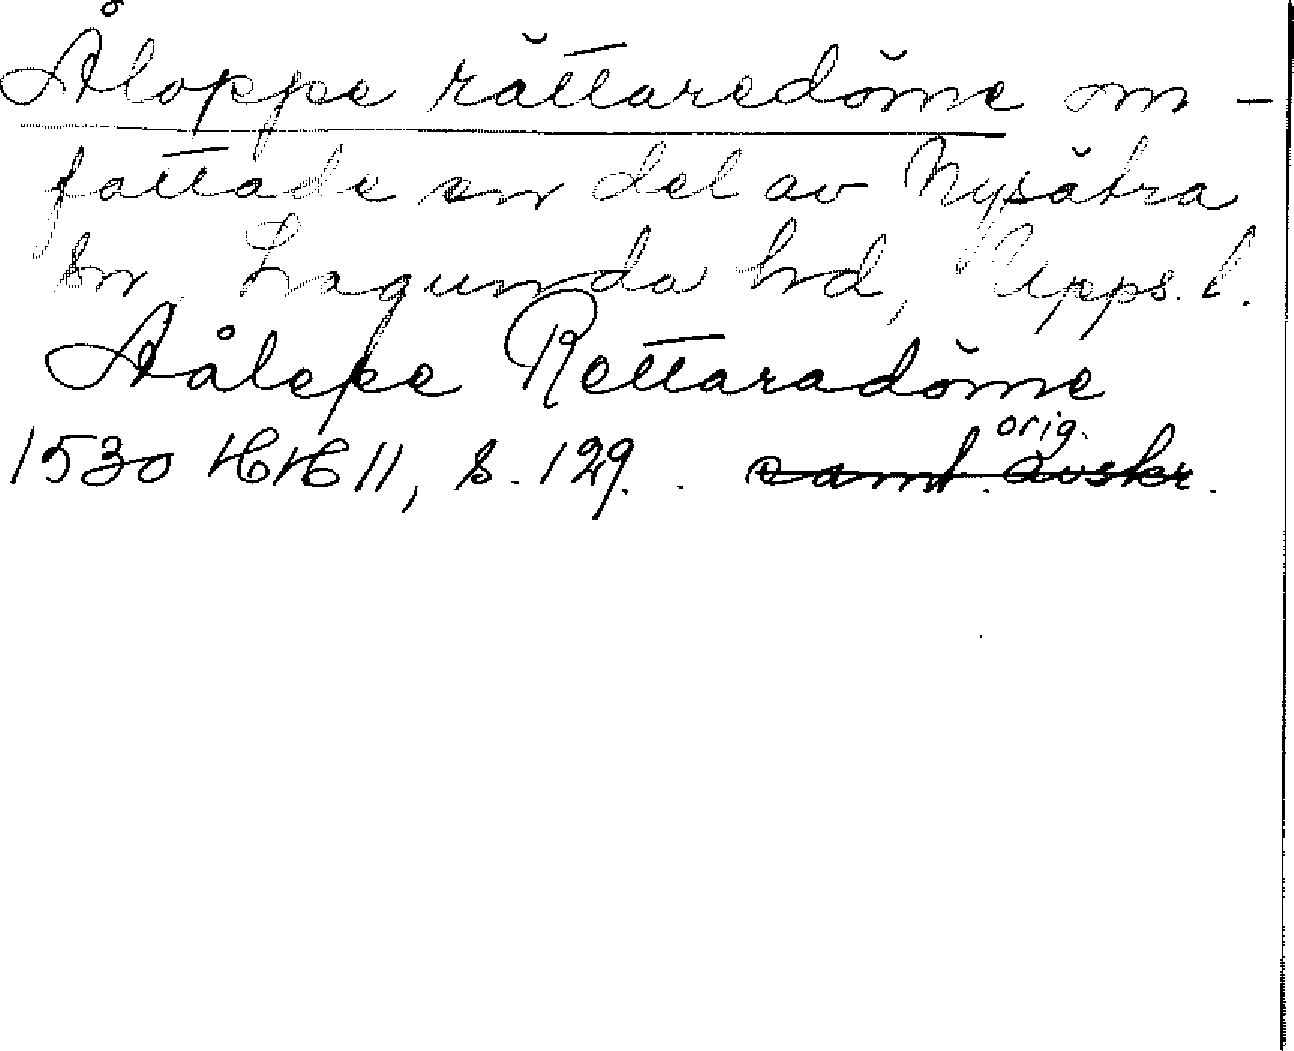 Åloppe rättaredöme om-
fattade en del av Nysätra
sn, Lagunda hd, Upps. l.
Aålepe Rettaradöme
orig.
1530 HH 11, s. 129. . samt. avskr.